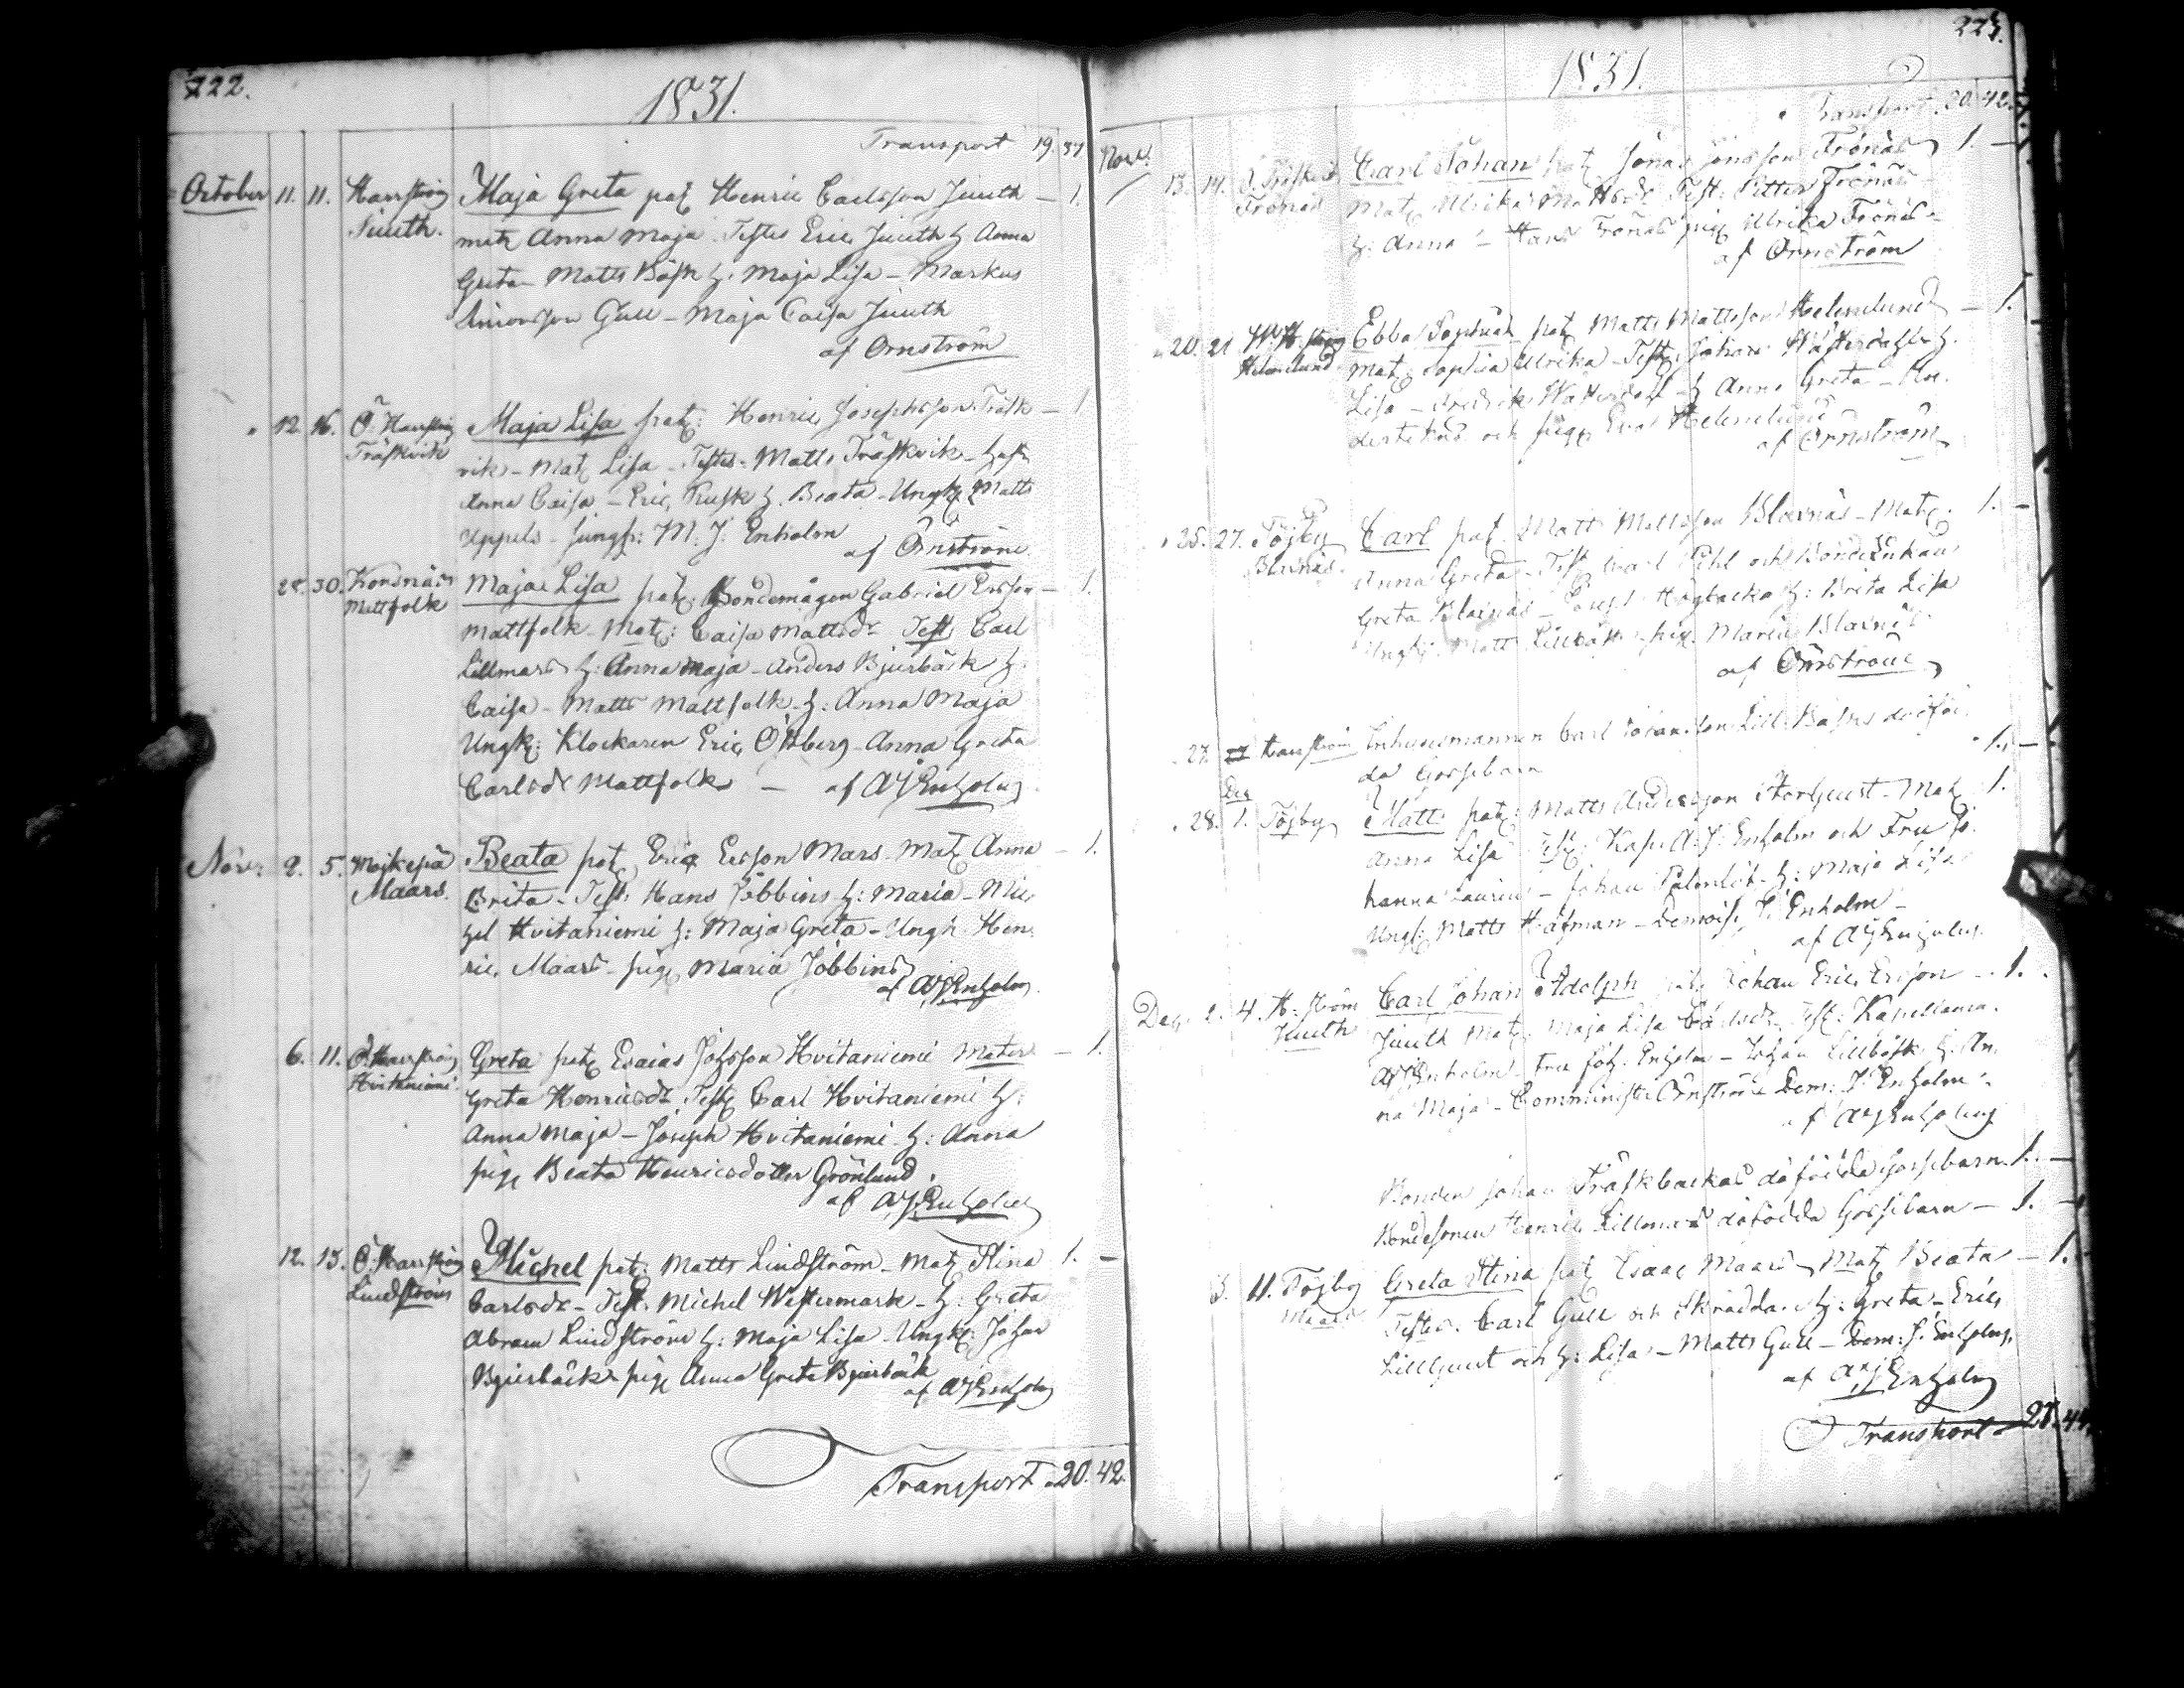 222.
1831.
Transport 19. 37
October 11. 11. Harrström Juuth. Maja Greta pat: Henric Carlsson Juuth — 1.
mat: Anna Maja Testes Eric Juuth h. Anna
Greta Matts Båsk h. Maja Lisa – Markus
Gull – Maja Caisa Juuth
af Örnström
12. 16. Ö. Harrström Träskvik Maja Lisa pat: Henric Josephsson Träsk — 1
vik – Mat: Lisa – Testes – Matts Träskvik – hust:
Anna Caisa – Eric h. Beata – Ungk: Matts
Uppels – Jungfr: M. J. Enholm
af Örnström
28. 30. Korsnäs Mattfolk Maja Lisa pat: Bondemågen Gabriel Ersson — 1.
Mattfolk – Mat: Caisa Mattsdr Test: Carl
Lillmars h: Anna Maja – Anders Bjurbäck h:
Caisa – Matts Mattfolk h: Anna Maja
Ungk: Klockaren Eric Östberg – Anna Greta
Carlsdr Mattfolk — af AJEnholm
Nov: 2. 5. Moikepä Maars. Beata pat: Eric Ersson Mars – Mat: Anna — 1.
Brita – Test: Hans Jöbbins h: Maria – Mic
hel Hvitaniemi h: Maja Greta – Ungk: Hen
ric Maars – pig: Maria Jöbbins
af AJEnholm
6. 11. Ö. Harrström Hvitaniemi Greta pat: Esaias Johsson Hvitaniemi Mater — 1.
Greta Henricsdr Test: Carl Hvitaniemi h:
Anna Maja – Joseph Hvitaniemi h: Anna
pig: Beata Henricsdotter Grönlund.
af AJEnholm
12. 13. Ö. Harrström Lindström Michel pat: Matts Lindström – Mat: Stina 1. —
Carlsdr – Test: Michel Westermark – h: Greta
Abram Lindström h: Maja Lisa – Ungk: Johan
Bjurbäck pig: Anna Greta Bjurbäck
af AJEnholm
Transport 20. 42.
223.
1831.
Transport 20. 42.
Nov:
13. 14. Frönäs Carl Johan pat: Jonas Jonsson Frönäs 1. —
Mat: Ulrika Mattsdr Test: Petter Frönäs
h: Anna – Hans Frönäs pig: Ulrika Frönäs
af Örnström
20. 21 Helenelund Ebba Sophia pat: Matts Mattsson Helenelund — 1.
Mat: Sophia Ulrika – Test: Johan h.
Lisa – Fredrik h Anna Greta –
och pig: Eva Helenelund
af Örnström
25. 27. Töjby Blaxnäs. Carl pat: Matts Mattsson Blaxnäs – Mat: 1. —
Anna Greta – Test: Carl Pihl och Bonde Enkan
Greta Blaxnäs – Joseph Högbacka h: Brita Lisa
Ungk: Matts pig: Maria Blaxnäs
af Örnström
27. 27 Harrström Inhysesmannen Carl Johansson Lill Båsks dödföd
da Gossebarn 1. —
Dec
28. 1. Töjby Matts pat: Matts Andersson Storgust – Mat: 1.
Anna Lisa Test: Kap: A. J. Enholm och Fru Jo
hanna – Johan h: Maja Lisa
Ungk: Matts Hafman – Demois: J. Enholm –
af AJEnholm
Dec. 2. 4. H:ström Juuth Carl Johan Adolph pat: Johan Eric Ersson — 1.
Juuth Mat: Maja Lisa Carlsdr Test: Kapellanen
AJEnholm – Fru Joh: Enholm – Johan Lillbåsk h: An
na Maja – Comminister Örnström Dem: J. Enholm
af AJEnholm
Bonden Johan Träskbackas döfödda Gossebarn. 1. —
Bondesonen Henric Lillmars döfödda Gossebarn — 1. —
3. 11. Töjby Maars Greta Stina pat: Esaac Maars Mat: Beata — 1.
Testes. Carl Gull och h: Greta – Eric
Lillgust och h: Lisa – Matts Gull – Dem: J. Enholm,
af AJEnholm
Transport